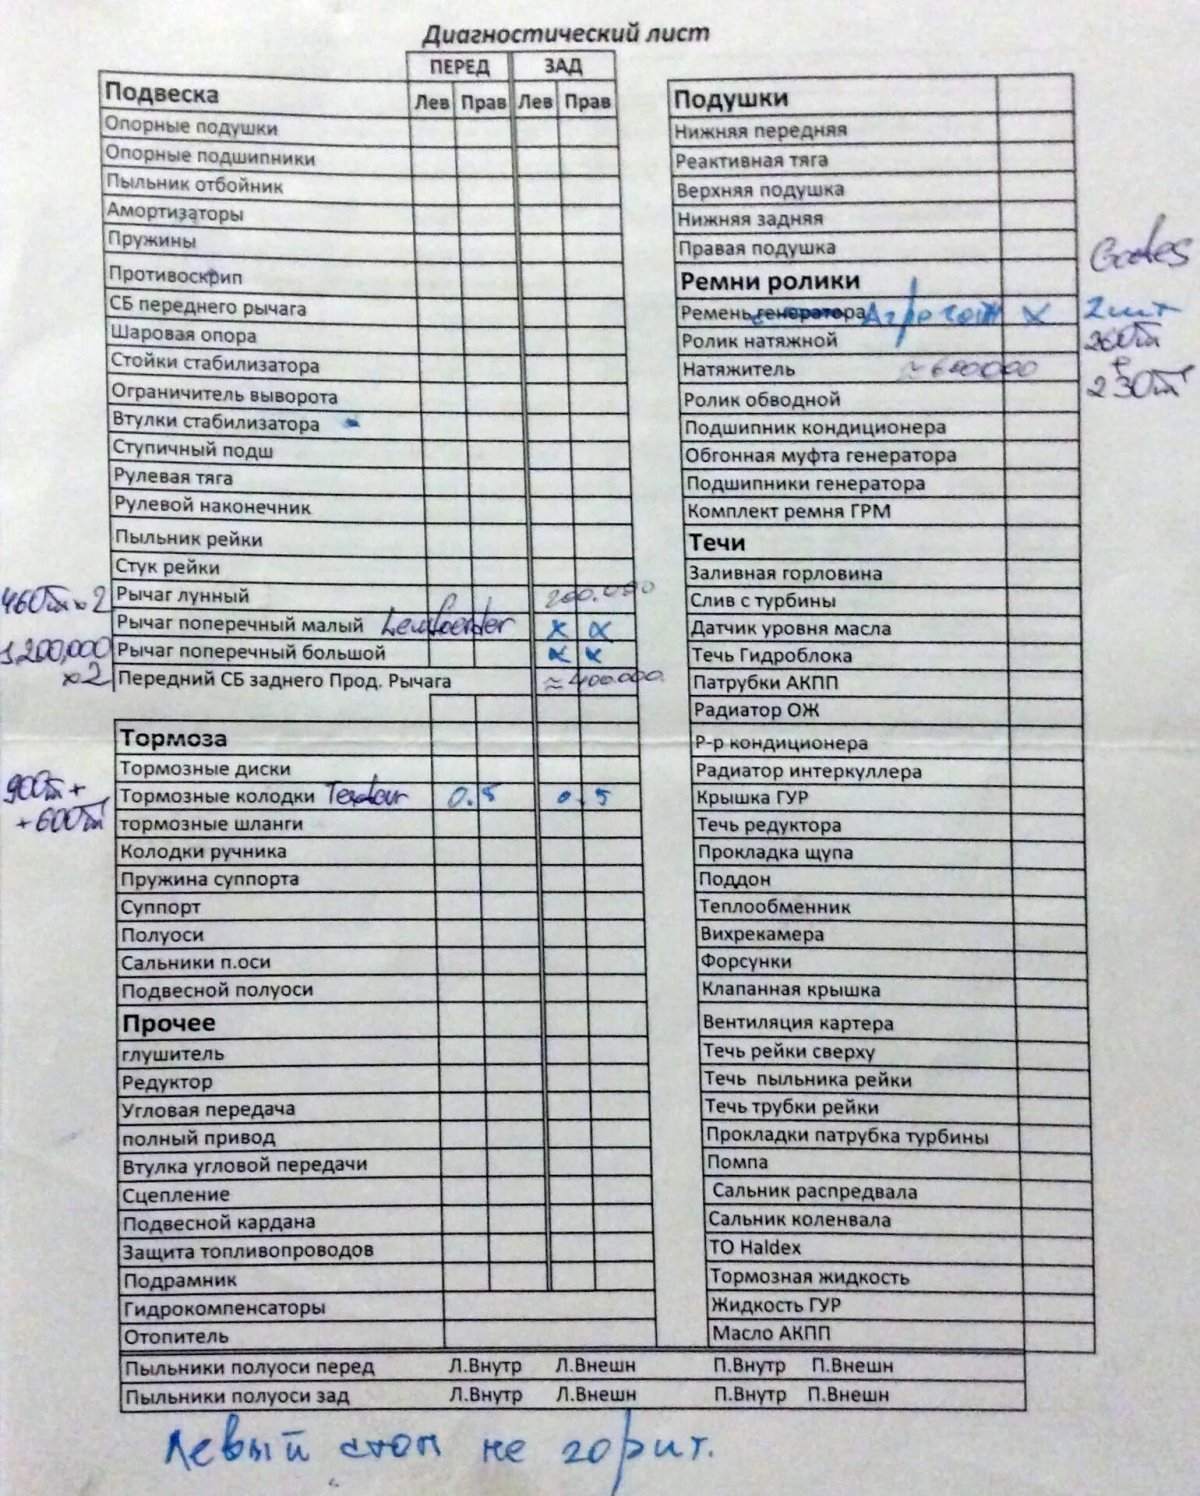 Диагностический лист
ПЕРЕД ЗАД
Подвеска Лев Прав Лев Прав
Опорные подушки
Опорные подшипники
Пыльник отбойник
Амортизаторы
Пружины
Противоскрип
СБ переднего рычага
Шаровая опора
Стойки стабилизатора
Ограничитель выворота
Втулки стабилизатора
Ступичный подш
Рулевая тяга
Рулевой наконечник
Пыльник рейки
Стук рейки
460т x2 Рычаг лунный 200.000
Рычаг поперечный малый Lemfoerder x x
1,200,000 Рычаг поперечный большой x x
x2 Передний СБ заднего Прод. Рычага ≈400.000
Тормоза
Тормозные диски
900т+ Тормозные колодки Textar 0.5 0.5
+600т тормозные шланги
Колодки ручника
Пружина суппорта
Суппорт
Полуоси
Сальники п.оси
Подвесной полуоси
Прочее
глушитель
Редуктор
Угловая передача
полный привод
Втулка угловой передачи
Сцепление
Подвесной кардана
Защита топливопроводов
Подрамник
Гидрокомпенсаторы
Отопитель
Подушки
Нижняя передняя
Реактивная тяга
Верхняя подушка
Нижняя задняя
Правая подушка Gates
Ремни ролики
Ремень генератора Агрегат x 2шт
Ролик натяжной 260т
Натяжитель ≈600000 + 230т
Ролик обводной
Подшипник кондиционера
Обгонная муфта генератора
Подшипники генератора
Комплект ремня ГРМ
Течи
Заливная горловина
Слив с турбины
Датчик уровня масла
Течь Гидроблока
Патрубки АКПП
Радиатор ОЖ
Р-р кондиционера
Радиатор интеркуллера
Крышка ГУР
Течь редуктора
Прокладка щупа
Поддон
Теплообменник
Вихрекамера
Форсунки
Клапанная крышка
Вентиляция картера
Течь рейки сверху
Течь пыльника рейки
Течь трубки рейки
Прокладки патрубка турбины
Помпа
Сальник распредвала
Сальник коленвала
ТО Haldex
Тормозная жидкость
Жидкость ГУР
Масло АКПП
Пыльники полуоси перед Л.Внутр Л.Внешн П.Внутр П.Внешн
Пыльники полуоси зад Л.Внутр Л.Внешн П.Внутр П.Внешн
Левый стоп не горит.